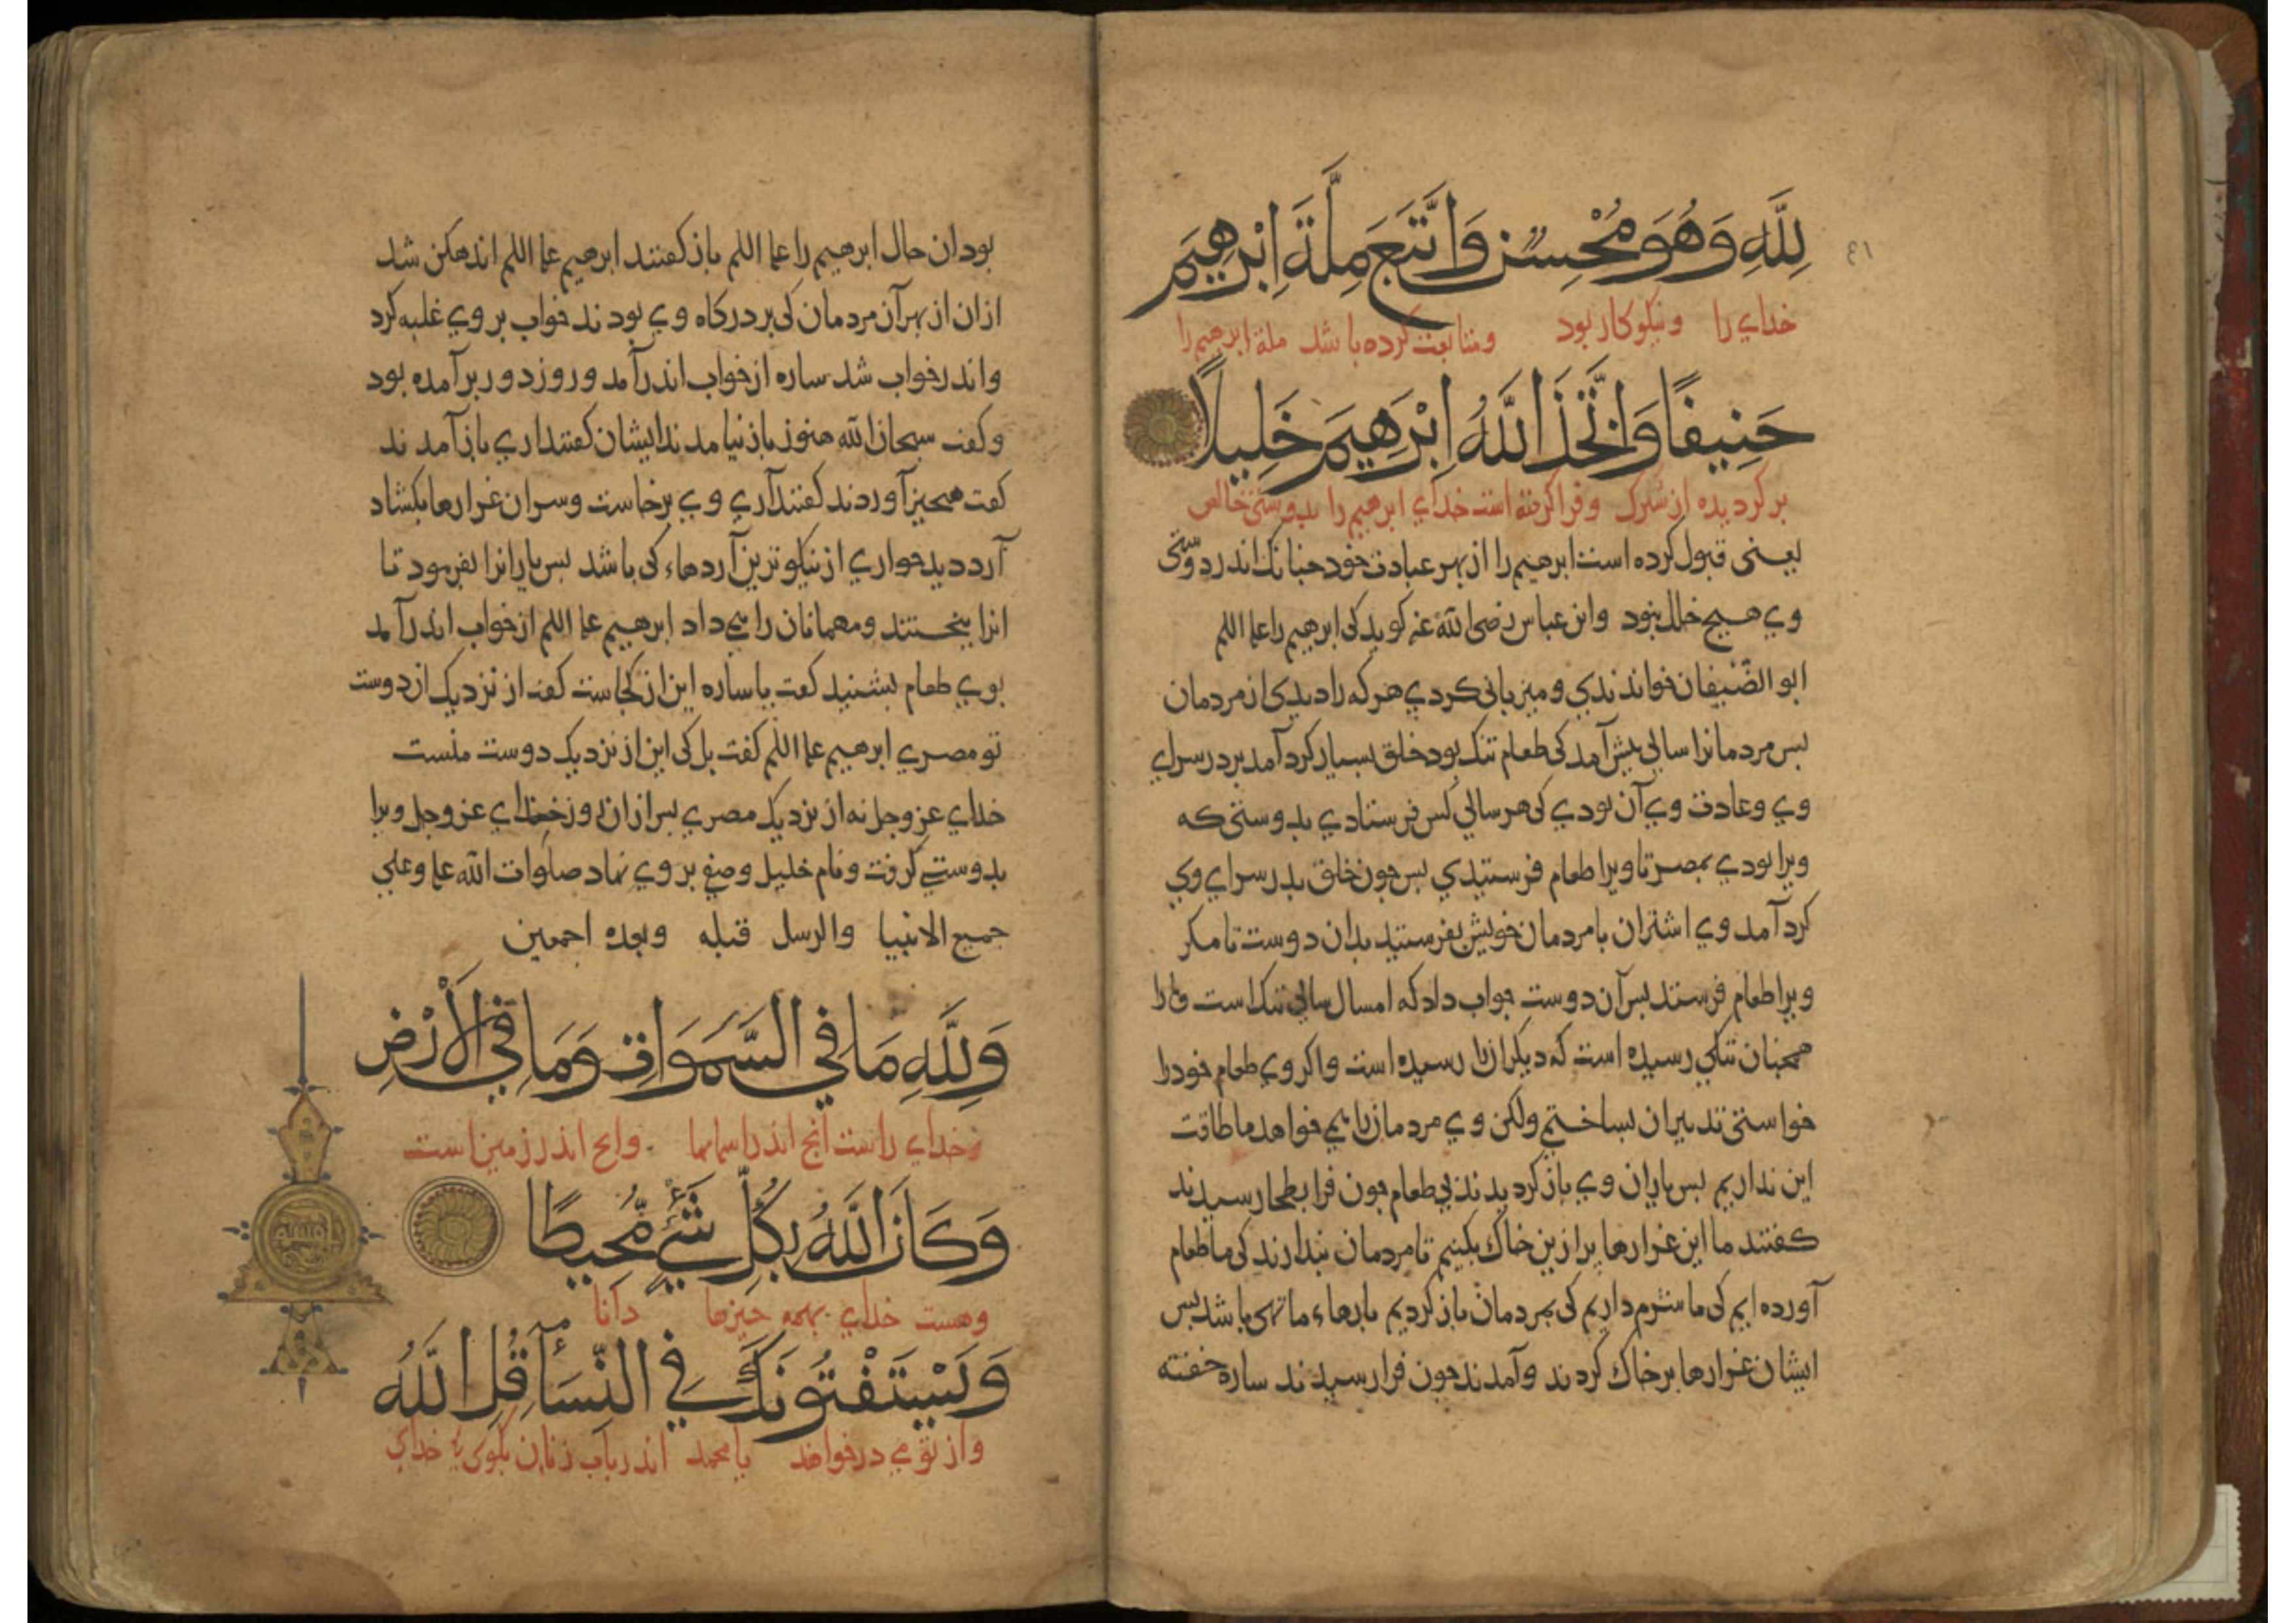 ٤١
لِلَّهِ وَهُوَ مُحْسِنٌ وَاتَّبَعَ مِلَّةَ اِبْرٰهِيمَ
خدای را ونیکوکار بود ومتابعت کرده باشد ملة ابرهیم را
حَنِيفًا وَاتَّخَذَ اللَّهُ اِبْرٰهِيمَ خَلِيلًا
برکردیده از شرک وفراکرفته است خدای ابرهیم را بدوستی خالص
یعنی قبول کرده است ابرهیم را از بهر عبادت خود جنانک اندر دوستی
وی هیچ خلل نبود وابن عباس رضی الله عنه کوید کی ابرهیم را علیه السلم
ابو الضَّیفان خواندندی ومیزبانی کردی هر که را دیدی از مردمان
بس مردمانرا سالی بیش آمد کی طعام تنک بود خلق بسیار کرد آمد بر در سرای
وی وعادت وی آن بودی کی هر سالی کس فرستادی بدوستی که
ویرا بودی بمصر تا ویرا طعام فرستیدی بس جون خلق بدر سرای وی
کرد آمد وی اشتران با مردمان خویش بفرستید بدان دوست تا مکر
ویرا طعام فرستد بس آن دوست جواب داد که امسال سالی تنک است وما را
همجنان تنکی رسیده است که دیکرانرا رسیده است واکر وی طعام خود را
خواستی تدبیر آن بساختیم ولکن وی مردمانرا می خواهد ما طاقت
این نداریم بس یاران وی باز کردیدند بی طعام جون فرا بطحا رسیدند
کفتند ما این غرارها بر ازین خاک بکنیم تا مردمان بندارند کی ما طعام
آورده ایم کی ما شرم داریم کی بمردمان باز کردیم بارهاء ما تهی باشد بس
ایشان غرارها بر خاک کردند وآمدند جون فرا رسیدند ساره خفته
بود ان حال ابرهیم را علیه السلم باز کفتند ابرهیم علیه السلم اندهکن شد
ازان از بهر آن مردمان کی بر درکاه وی بودند خواب بر وی غلبه کرد
واندر خواب شد ساره از خواب اندر آمد وروز دور بر آمده بود
وکفت سبحان الله هنوز باز نیامدند ایشان کفتند اری باز آمدند
کفت هیچیز آوردند کفتند آری وی برخاست وسران غرارها بکشاد
آرد دید حواری از نیکوترین آردهاء کی باشد بس یارانرا بفرمود تا
انرا ببختند ومهمانان را می داد ابرهیم علیه السلم از خواب اندر آمد
بوی طعام بشنید کفت یا ساره این از کجاست کفت از نزدیک از دوست
تو مصری ابرهیم علیه السلم کفت بل کی این از نزدیک دوست منست
خدای عز وجل نه از نزدیک مصری بس ازان روز خدای عز وجل ویرا
بدوستی کرفت ونام خلیل وصفی بر وی نهاد صلوات الله علیه وعلی
جمیع الانبیا والرسل قبله وبعده اجمعین
وَلِلَّهِ مَا فِي السَّمٰوَاتِ وَمَا فِي الْاَرْضِ
خدای راست آنچ اندر اسمانها وانچ اندر زمین است
وَكَانَ اللَّهُ بِكُلِّ شَيْءٍ مُحِيطًا
وهست خدای بهمه جیزها دانا
وَيَسْتَفْتُونَكَ فِي النِّسَآءِ قُلِ اللَّهُ
واز تو می درخواهند یا محمد اندر باب زنان بکوی یا خدای